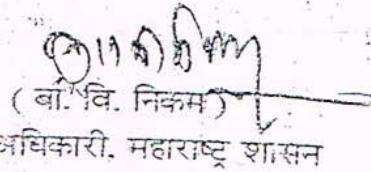 ( बा. वि. निकम )
अधिकारी, महाराष्ट्र शासन